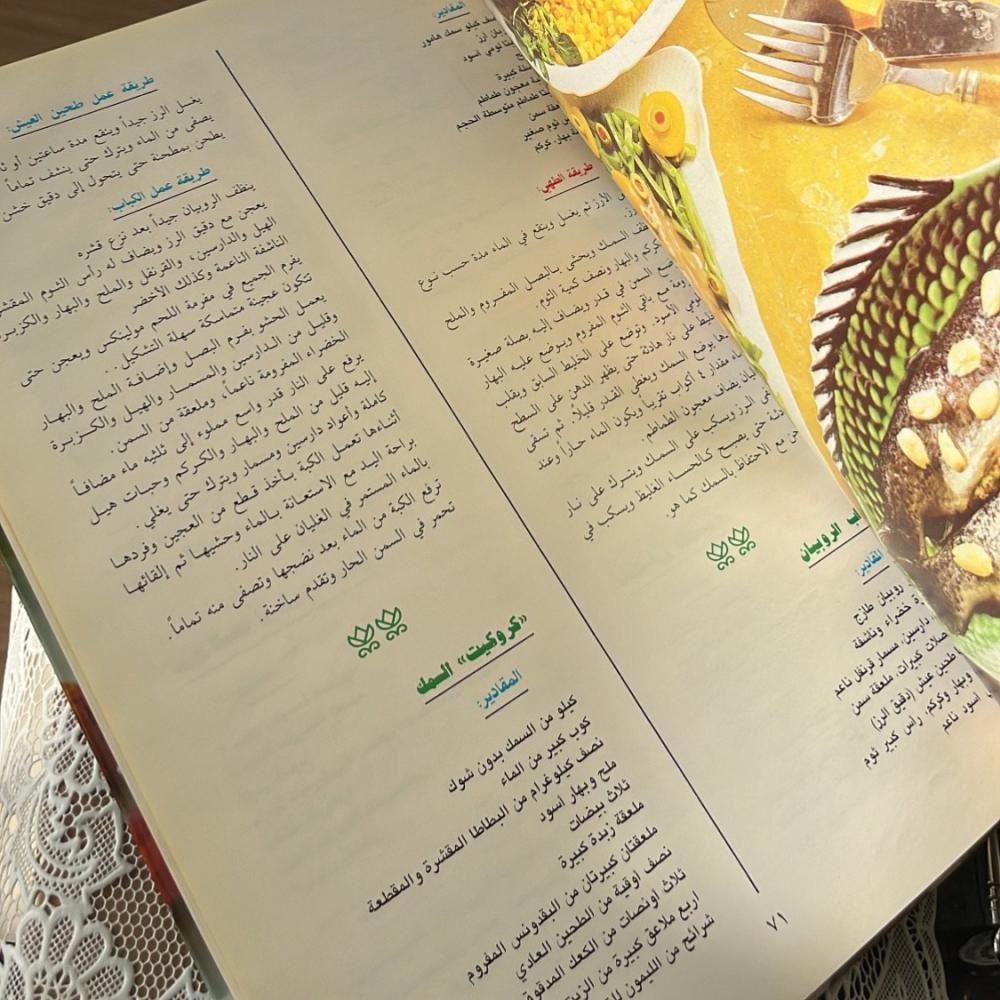 المقادير:
كيلو سمك هامور
اسود
كبيرة
معجون طماطم
طماطم متوسطة الحجم
سمن
ثوم صغير
بهار، كركم
طريقة الطهي:
الأرز ثم يغسل وينقع في الماء مدة حسب نوع
السمك ويحشى بالبصل المفروم والملح
والبهار ونصف كمية الثوم.
السمن في قدر ويضاف إليه بصلة صغيرة
مع باقي الثوم المفروم ويوضع عليه البهار
الأسود. وتوضع على الخليط السابق ويقلب
على نار هادئة حتى يظهر الدهن على السطح
يوضع السمك ويغطى القدر قليلاً. ثم يسقى
مقدار ٤ أكواب تقريباً ويكون الماء حاراً وعند
يضاف معجون الطماطم.
الرز ويسكب على السمك ويترك على نار
حتى يصبح كالحساء الغليظ ويسكب في
مع الاحتفاظ بالسمك كما هو.
الروبيان
المقادير:
روبيان طازج
خضراء وناشفة
دارسين، مسمار قرنفل ناعم
كبيرات، ملعقة سمن
طحين عيش (دقيق الرز)
وبهار وكركم، رأس كبير ثوم
اسود ناعم
٧١
طريقة عمل طحين العيش:
يغسل الرز جيداً وينقع مدة ساعتين أو
يصفى من الماء ويترك حتى ينشف تماماً
يطحن بمطحنة حتى يتحول إلى دقيق خشن
طريقة عمل الكباب:
ينظف الروبيان جيداً بعد نزع قشره
يعجن مع دقيق الرز ويضاف له رأس الثوم المقشر
الهيل والدارسين، والقرنفل والملح والبهار والكزبرة
الناشفة الناعمة وكذلك الأخضر
يفرم الجميع في مفرمة اللحم مولينكس ويعجن حتى
تتكون عجينة متماسكة سهلة التشكيل..
يعمل الحشو بفرم البصل وإضافة الملح والبهار
وقليل من الدارسين والمسمار والهيل والكزبرة
الخضراء المفرومة ناعماً، وملعقة من السمن.
يرفع على النار قدر واسع مملوء إلى ثلثيه ماء مضافاً
إليه قليل من الملح والبهار والكركم وحبات هيل
كاملة وأعواد دارسين ومسمار ويترك حتى يغلي.
أثناءها تعمل الكبة بأخذ قطع من العجين وفردها
براحة اليد مع الاستعانة بالماء وحشيها ثم إلقائها
بالماء المستمر في الغليان على النار.
ترفع الكبة من الماء بعد نضجها وتصفى منه تماماً.
تحمر في السمن الحار وتقدم ساخنة.
«كروكيت» السمك
المقادير:
كيلو من السمك بدون شوك
كوب كبير من الماء
نصف كيلو غرام من البطاطا المقشرة والمقطعة
ملح وبهار أسود
ثلاث بيضات
ملعقة زبدة كبيرة
ملعقتان كبيرتان من البقدونس المفروم
نصف أوقية من الطحين العادي
ثلاث أونصات من الكعك المدقوق
اربع ملاعق كبيرة من الزيت
شرائح من الليمون